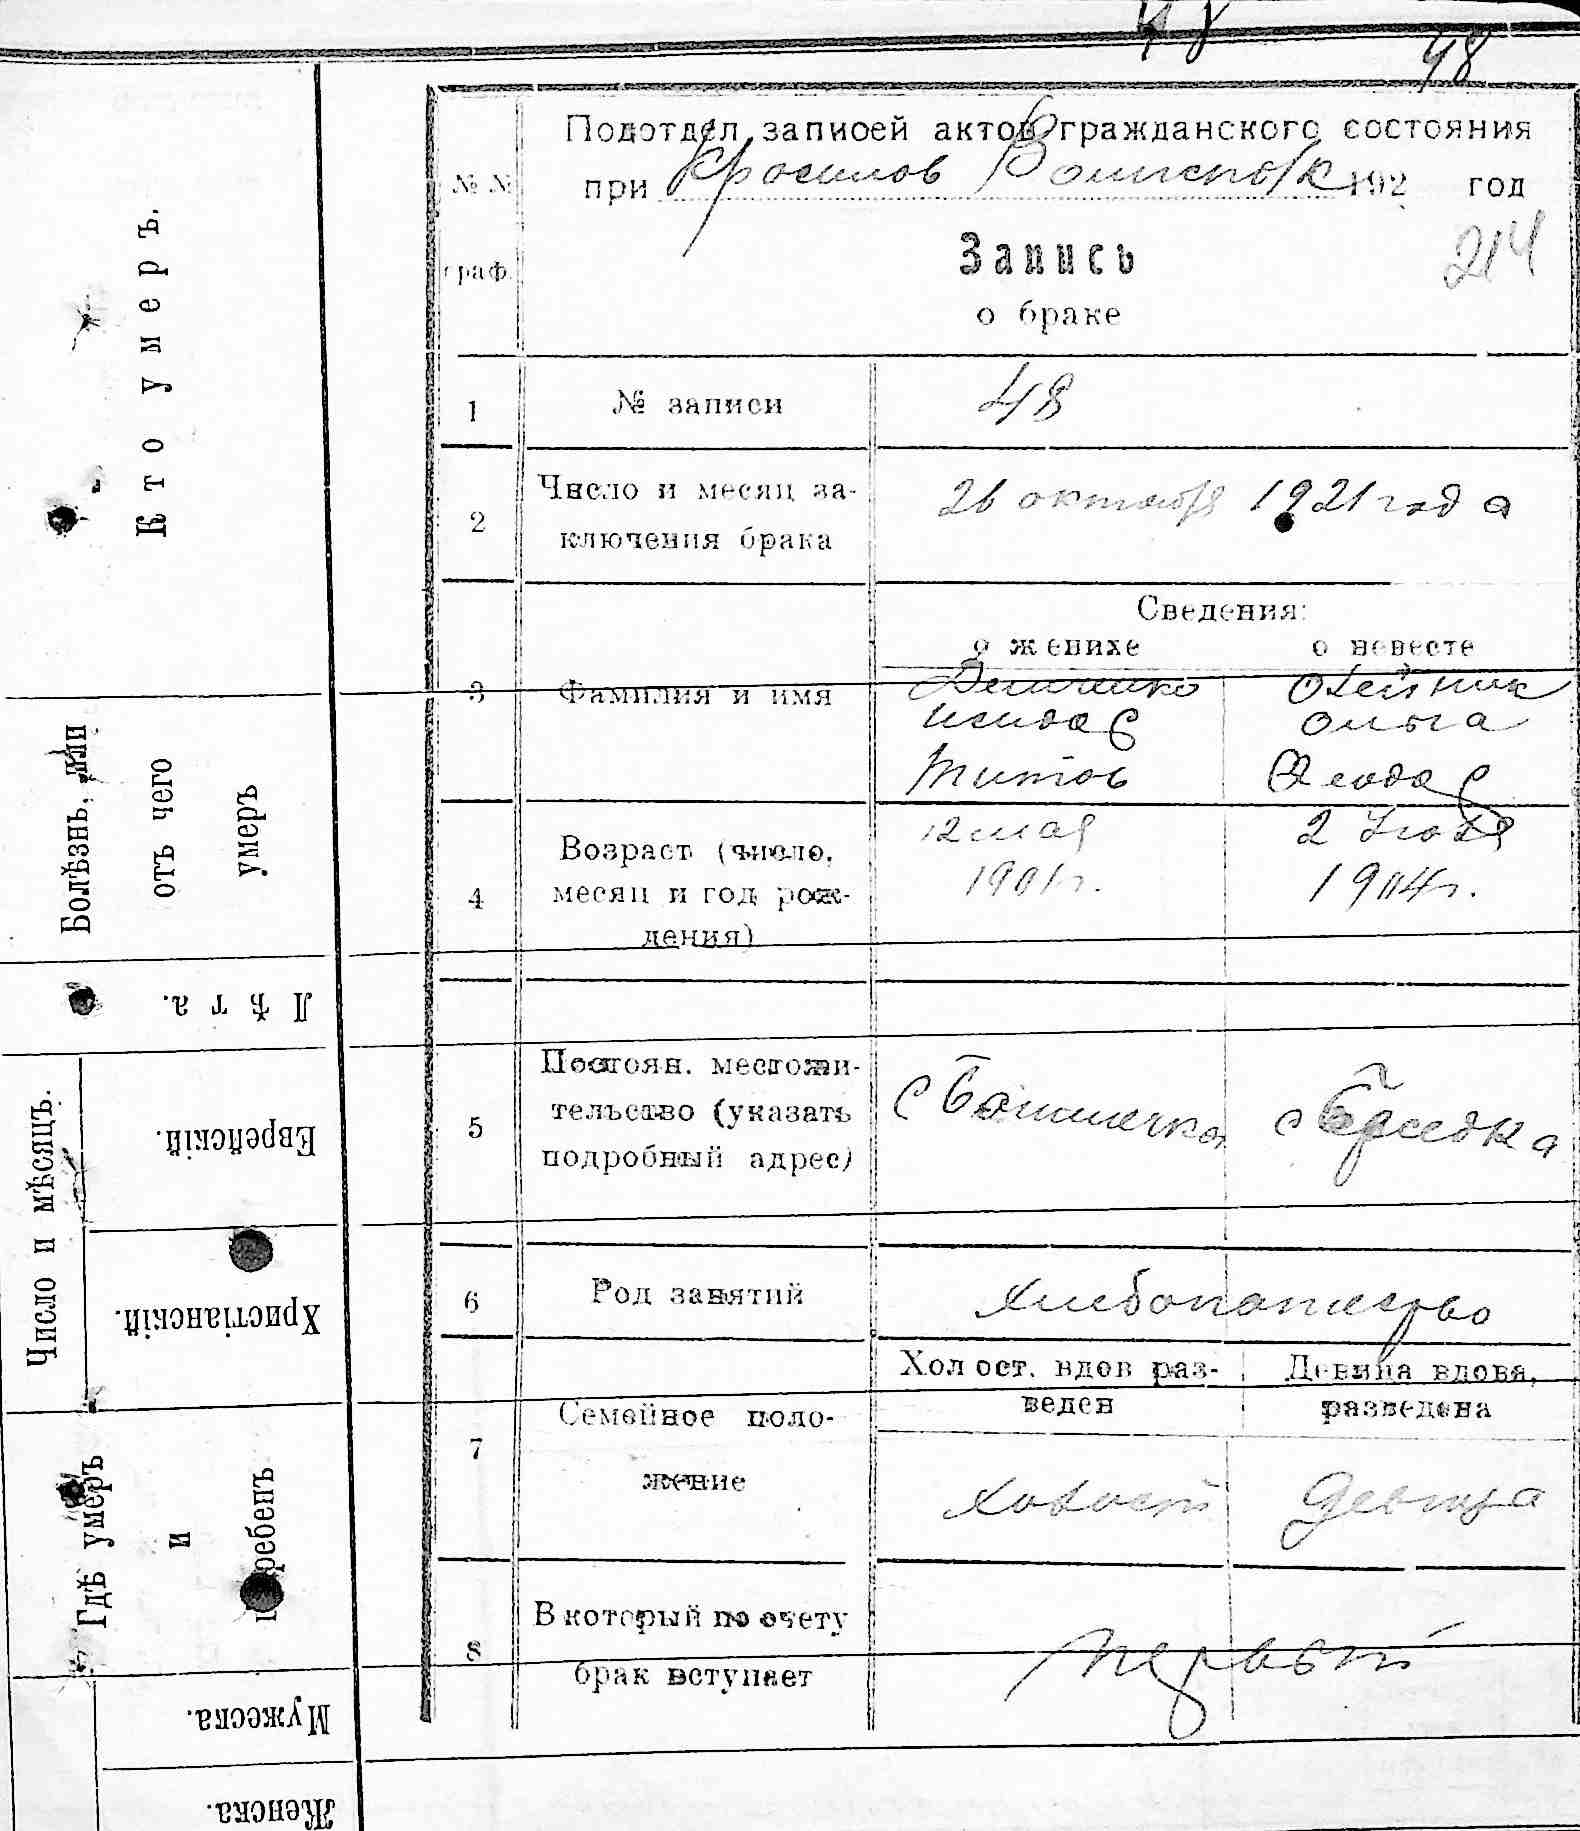 48
48
Подотдел записей актов гражданского состояния
при Красилов Волисполк 192 год
№ №
граф.
Запись
214
о браке
1 № записи 48
2 Число и месяц за-
ключения брака
26 октября 1921 года
Сведения:
о женихе о невесте
3 Фамилия и имя
Олейник
Ольга
Титов Феодор
4 Возраст (число,
месяц и год рож-
дения)
12 мая 2
1901 г. 1904 г.
5 Постоян. местожи-
тельство (указать
подробный адрес)
с
с
6 Род занятий хлебопашество
7 Семейное поло-
жение
Холост. вдов раз-
веден
Девица вдова,
разведена
холост девица
8 В который по счету
брак вступает
первый
Кто умеръ.
Болѣзнь, или
отъ чего
умеръ
Лѣта.
Число и мѣсяцъ.
Еврейскій.
Христіанскій.
Гдѣ умеръ
и
Мужеска.
Женска.